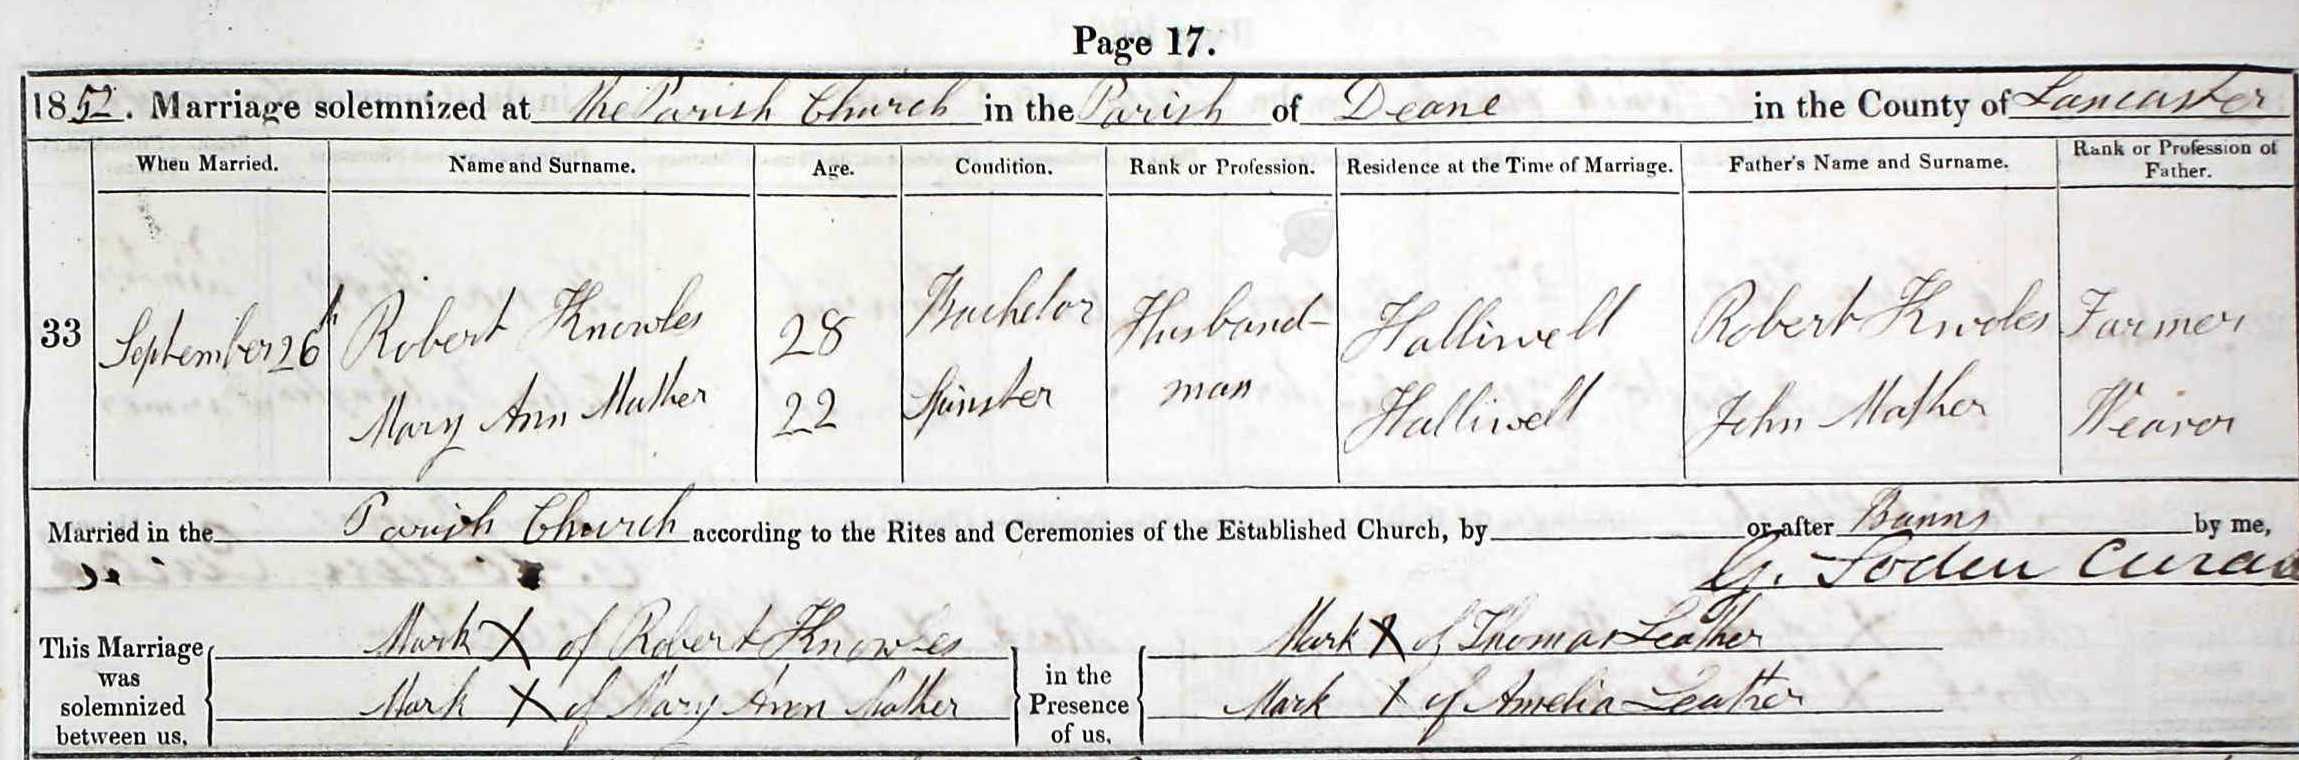 Page 17.
1852. Marriage solemnized at the Parish Church in the Parish of Deane in the County of Lancaster
When Married. Name and Surname. Age. Condition. Rank or Profession. Residence at the Time of Marriage. Father's Name and Surname. Rank or Profession of Father.
33 September 26th Robert Knowles 28 Bachelor Husband- Halliwell Robert Knwles Farmer
Mary Ann Mather 22 Spinster man Halliwell John Mather Weaver
Married in the Parish Church according to the Rites and Ceremonies of the Established Church, by or after Banns by me,
G. Soden Curate
This Marriage was solemnized between us,
Mark X of Robert Knowles
Mark X of Mary Ann Mather
in the Presence of us,
Mark X of Thomas Leather
Mark X of Amelia Leather